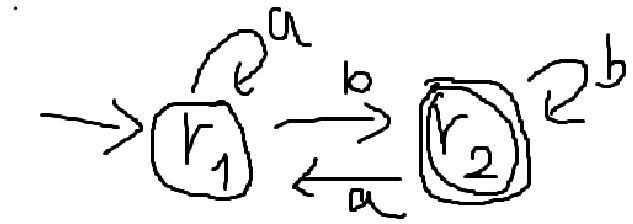 a
b
b
r1
r2
a